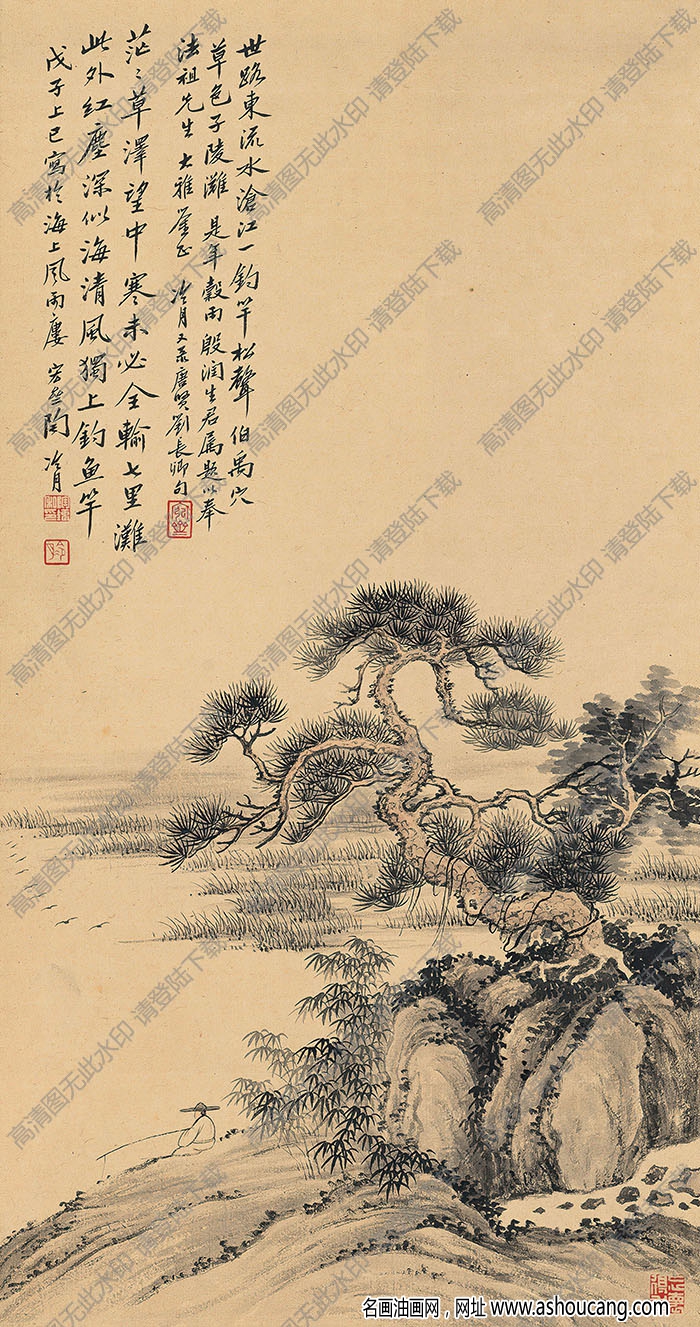 世路東流水滄江一釣竿松聲伯禹穴
草色子陵灘 是年穀雨殷潤生君屬題以奉
法祖先生大雅鑒正 冷月又录唐賢劉長卿句
茫〻草澤望中寒未必全輸七里灘
此外紅塵深似海清風獨上釣魚竿
戊子上巳寫於海上風雨廔 宏盦陶冷月
高清图无此水印 请登陆下载
名画油画网，网址 www.ashoucang.com